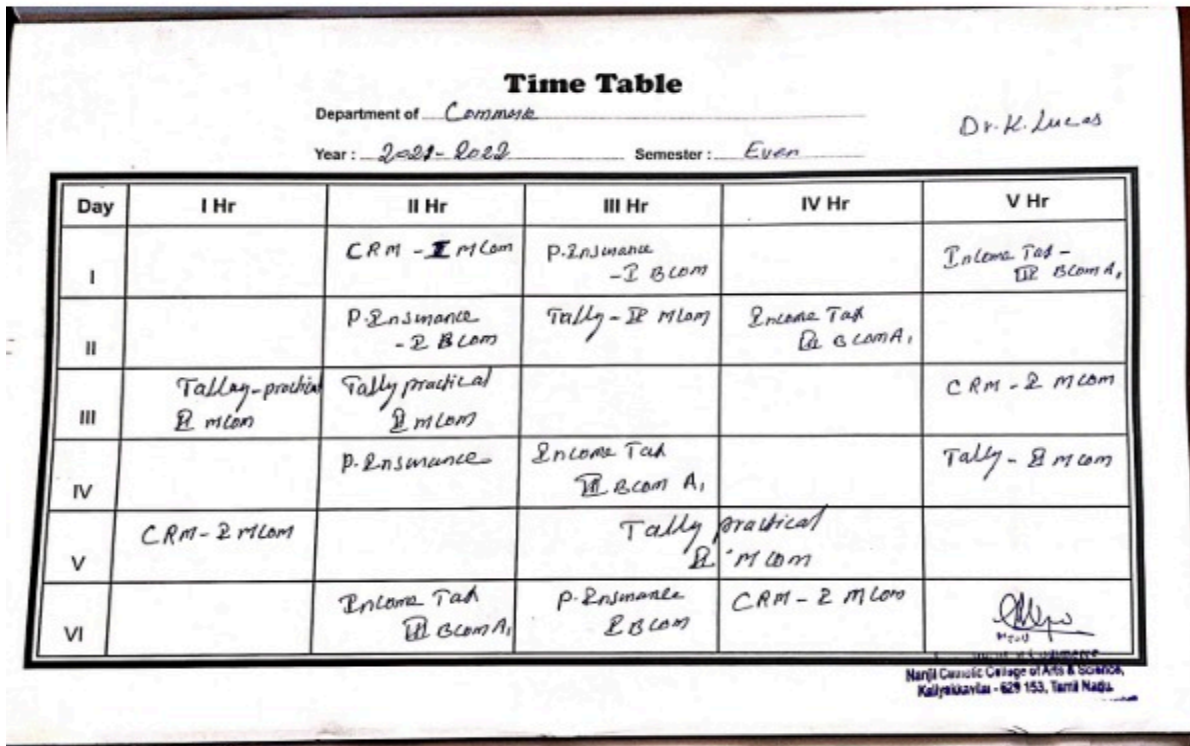 Time Table
Department of Commerce
Dr. K. Lucas
Year : 2021-2022 Semester : Even
Day I Hr II Hr III Hr IV Hr V Hr
I
CRM - I MCom
P. Insurance
- I BCom
Income Tax -
III BCom A1
II
P. Insurance
- I BCom
Tally - II MCom
Income Tax
III BCom A1
III
Tallay-practical
II MCom
Tally practical
II MCom
CRM - I MCom
IV
P. Insurance
Income Tax
III BCom A1
Tally - II MCom
V
CRM - I MCom
Tally practical
II MCom
VI
Income Tax
III BCom A1
P. Insurance
I BCom
CRM - I MCom
HOD
of Commerce
Nanjil Catholic College of Arts & Science,
Kaliyakkavilai - 629 153, Tamil Nadu.